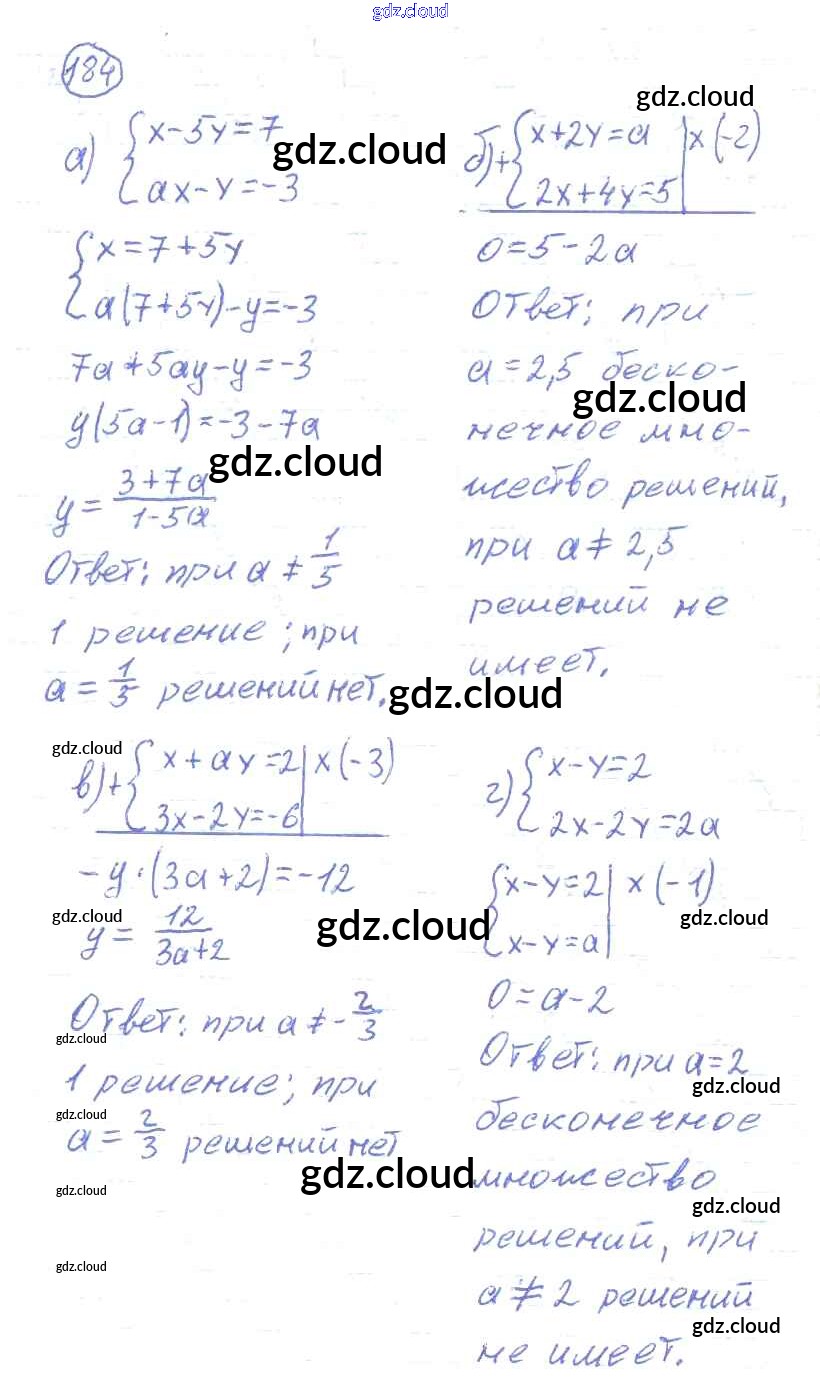 gdz.cloud
184
gdz.cloud
а) { x-5y=7
ax-y=-3
gdz.cloud
{ x=7+5y
a(7+5y)-y=-3
7a+5ay-y=-3
y(5a-1)=-3-7a
gdz.cloud
y = (3+7a)/(1-5a)
Ответ: при a ≠ 1/5
1 решение; при
a = 1/5 решений нет.
gdz.cloud
б) + { x+2y=a | x (-2)
2x+4y=5
0=5-2a
Ответ: при
a = 2,5 беско-
gdz.cloud
нечное мно-
жество решений,
при a ≠ 2,5
решений не
имеет.
gdz.cloud
в) + { x+ay=2 | x (-3)
3x-2y=-6
-y·(3a+2)=-12
gdz.cloud
y = 12/(3a+2)
gdz.cloud
Ответ: при a ≠ -2/3
gdz.cloud
1 решение; при
gdz.cloud
a = 2/3 решений нет
gdz.cloud
gdz.cloud
gdz.cloud
г) { x-y=2
2x-2y=2a
{ x-y=2 | x (-1)
gdz.cloud
x-y=a
0=a-2
Ответ: при a=2
gdz.cloud
бесконечное
множество
gdz.cloud
решений, при
a ≠ 2 решений
gdz.cloud
не имеет.